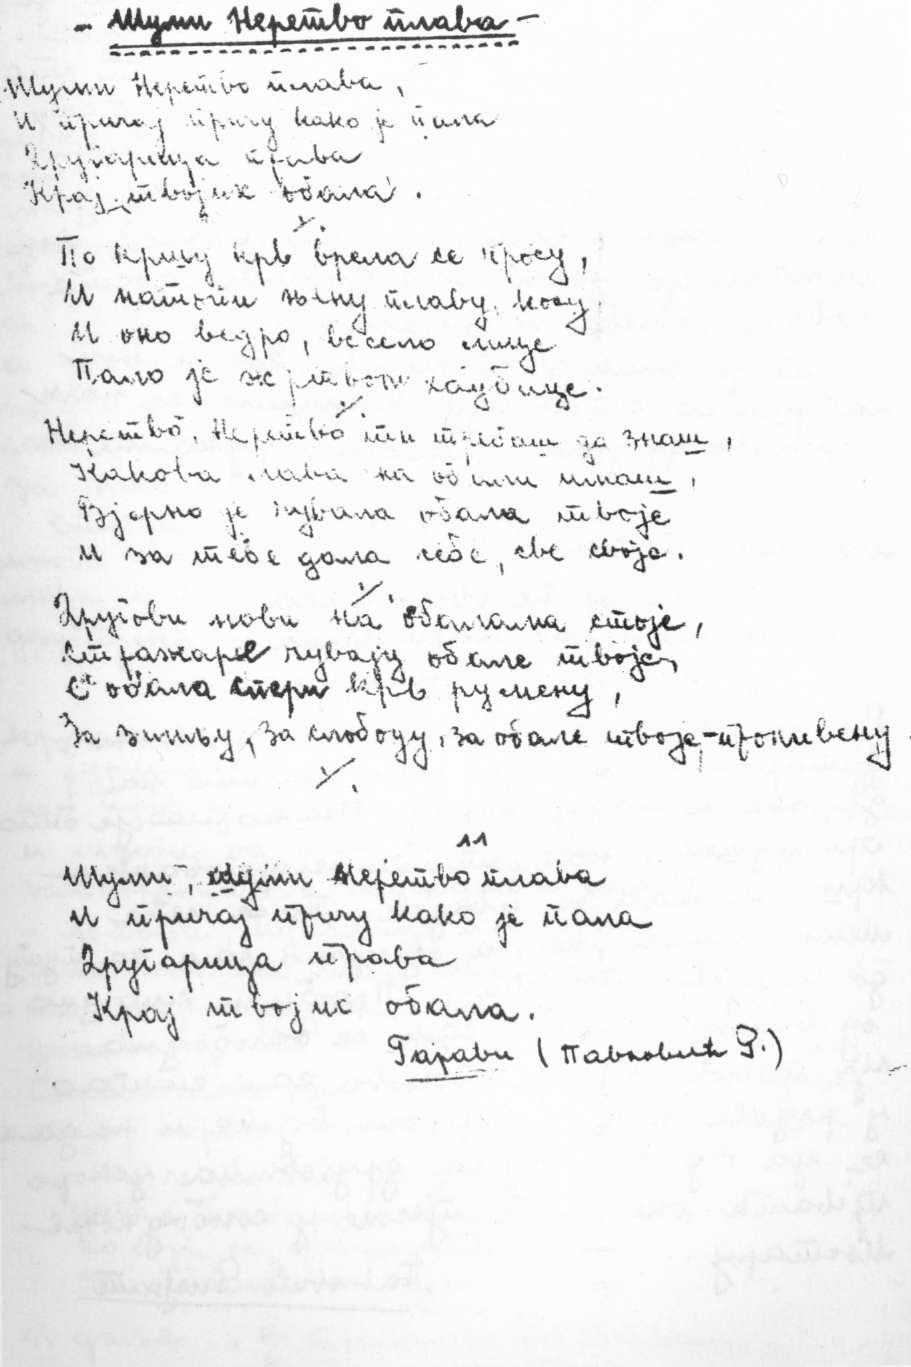 - Шуми Неретво плава -
Шуми Неретво плава,
И причај причу како је пала
Другарица права
Крај твојих обала.
По кршу крв врела се просу,
И натопи њену плаву косу
И оно ведро, весело лице
Пало је жртвом хаубице.
Неретво, Неретво ти требаш да знаш,
Каква слава на обали имаш,
Вјерно је чувала обала твоје
И за тебе дала себе, све своје.
Другови нови на обалама стоје,
Стражаре чувају обале твоје,
С обала спери крв румену,
За земљу, за слободу, за обале твоје,-проливену.
Шуми, шуми Неретво плава
И причај причу како је пала
Другарица права
Крај твојих обала.
Гарави (Павловић Р.)